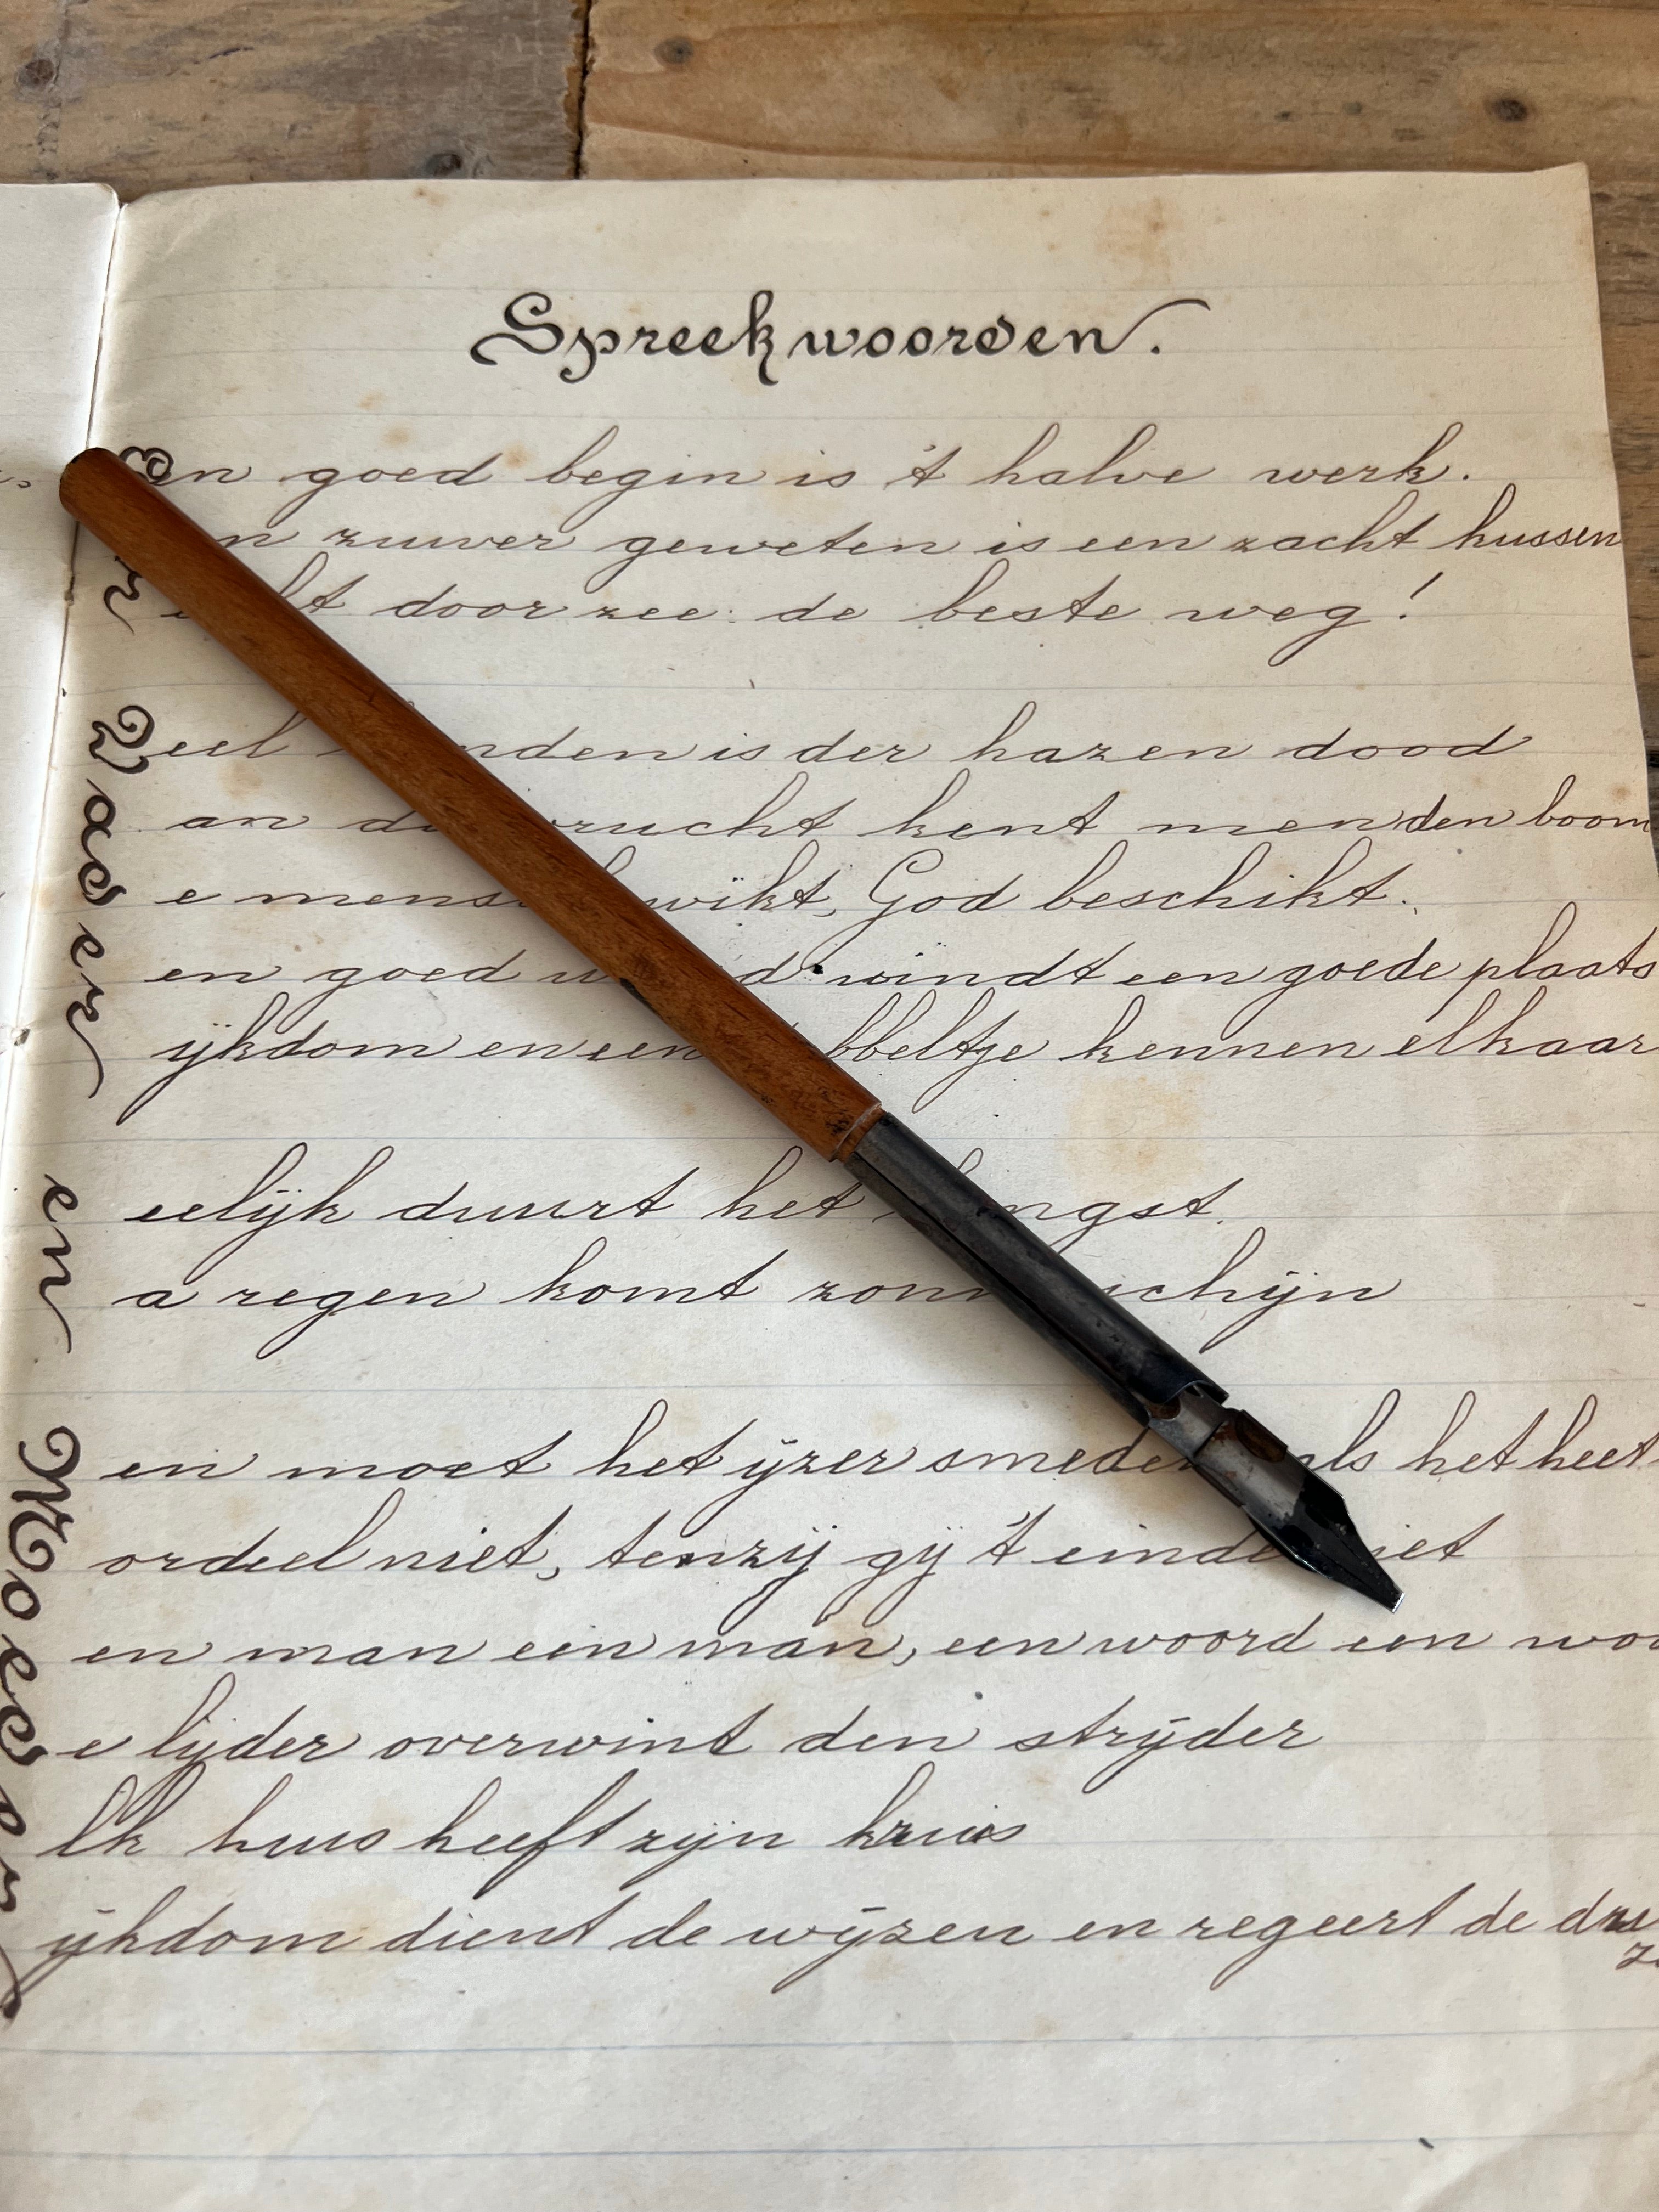 Spreekwoorden.
goed begin is 't halve werk.
zuiver geweten is een zacht kussen
door zee: de beste weg!
Veel is der hazen dood
aan vrucht kent men den boom
de wikt, God beschikt.
een goed vindt een goede plaats
rijkdom en een kennen elkaar
eerlijk duurt het langst.
na regen komt zonneschijn
Men moet het ijzer smeden als het heet
oordeel niet, tenzij gij 't einde ziet
een man een man, een woord een
de lijder overwint den strijder
elk huis heeft zijn kruis
rijkdom dient de wijzen en regeert de